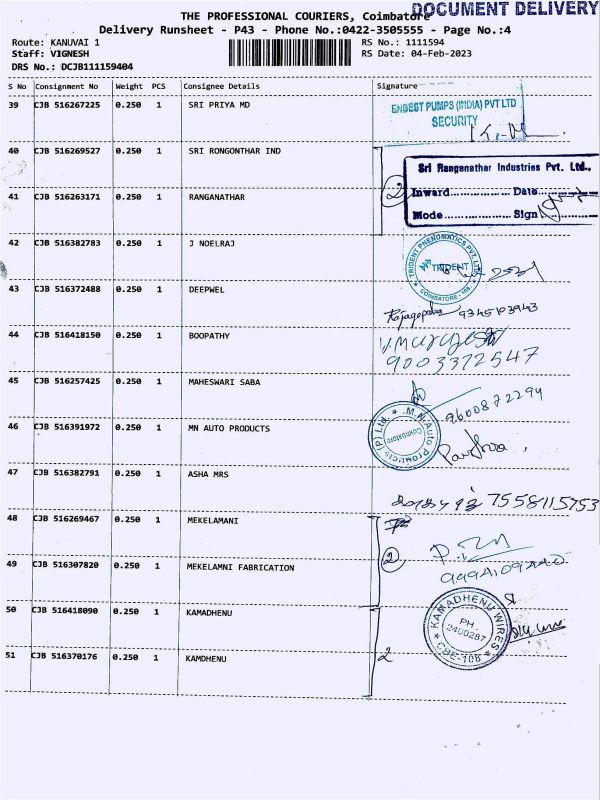 DOCUMENT DELIVERY
THE PROFESSIONAL COURIERS, Coimbatore
Delivery Runsheet - P43 - Phone No.:0422-3505555 - Page No.:4
Route: KANUVAI 1
RS No.: 1111594
Staff: VIGNESH
RS Date: 04-Feb-2023
DRS No.: DCJB111159404
S No Consignment No Weight PCS Consignee Details Signature
39 CJB 516267225 0.250 1 SRI PRIYA MD
ENBEST PUMPS (INDIA) PVT LTD
SECURITY
40 CJB 516269527 0.250 1 SRI RONGONTHAR IND
Sri Ranganathar Industries Pvt. Ltd.,
41 CJB 516263171 0.250 1 RANGANATHAR
2
Inward.................. Date..................
Mode.................. Sign..................
42 CJB 516382783 0.250 1 J NOELRAJ
TRIDENT PNEUMATICS PVT. LTD.
TRIDENT
COIMBATORE - 108.
43 CJB 516372488 0.250 1 DEEPWEL
Rajagopalan 9345103943
44 CJB 516418150 0.250 1 BOOPATHY
V.Murugesan
9003372547
45 CJB 516257425 0.250 1 MAHESWARI SABA
9600872294
46 CJB 516391972 0.250 1 MN AUTO PRODUCTS
M.N. Auto Products (P) Ltd.
Coimbatore
47 CJB 516382791 0.250 1 ASHA MRS
7558115753
48 CJB 516269467 0.250 1 MEKELAMANI
49 CJB 516307820 0.250 1 MEKELAMNI FABRICATION
2
50 CJB 516418090 0.250 1 KAMADHENU
KAMADHENU WIRES
PH.
2400287
CBE-108
51 CJB 516370176 0.250 1 KAMDHENU
2